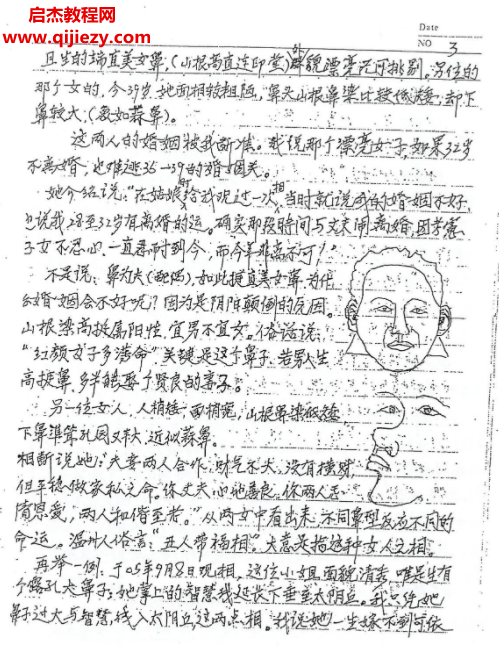 启杰教程网
www.qijiezy.cn
Date
NO 3
且生的端直美女鼻，(山根高直连印堂)外貌漂亮无可挑剔。另一位的
那个女的，今39岁，她面相较粗短，鼻头山根鼻梁比较低矮，却下
鼻较大；(教如蒜鼻)。
这两人的婚姻被我断准。我说那个漂亮女子，如果32岁
不离婚，也难逃35—39的婚姻关。
她介绍说："在姑娘时给我说过一次相，当时就说我的婚姻不好，
也说我28至32岁有离婚的运。确实那段时间与丈夫闹离婚，因考虑
子女不忍心，一直忍耐到今，而今年非离不可！"
不是说：鼻为夫(配偶)，如此挺直美女鼻，为什
么婚姻会不好呢？因为是阴阳颠倒的原因。
山根梁高挺属阳性，宜男不宜女。俗话说：
"红颜女子多薄命"关键是这个鼻子，若男人生
高挺鼻，多半能娶个贤良的妻子。
另一位女人，人稍矮，面稍宽，山根鼻梁低矮，
下鼻准算孔圆又大，近似蒜鼻。
相断说她："夫妻两人合作，财气不大，没有横财，
但平稳做家私之命。你丈夫心地善良。你两人
恩爱，两人和偕至老。"从两女中看出来，不同鼻型反应不同的
命运。温州人俗言："丑人带福相"。大意是指这种女人之相。
再举一例，于05年9月8日观相。这位小姐面貌清秀，唯是生有
个露孔大鼻子；她掌上的智慧线延长下垂至太阴丘。我只凭她
鼻子过大与智慧线入太阴丘这两点相。我说她一生嫁不到可依